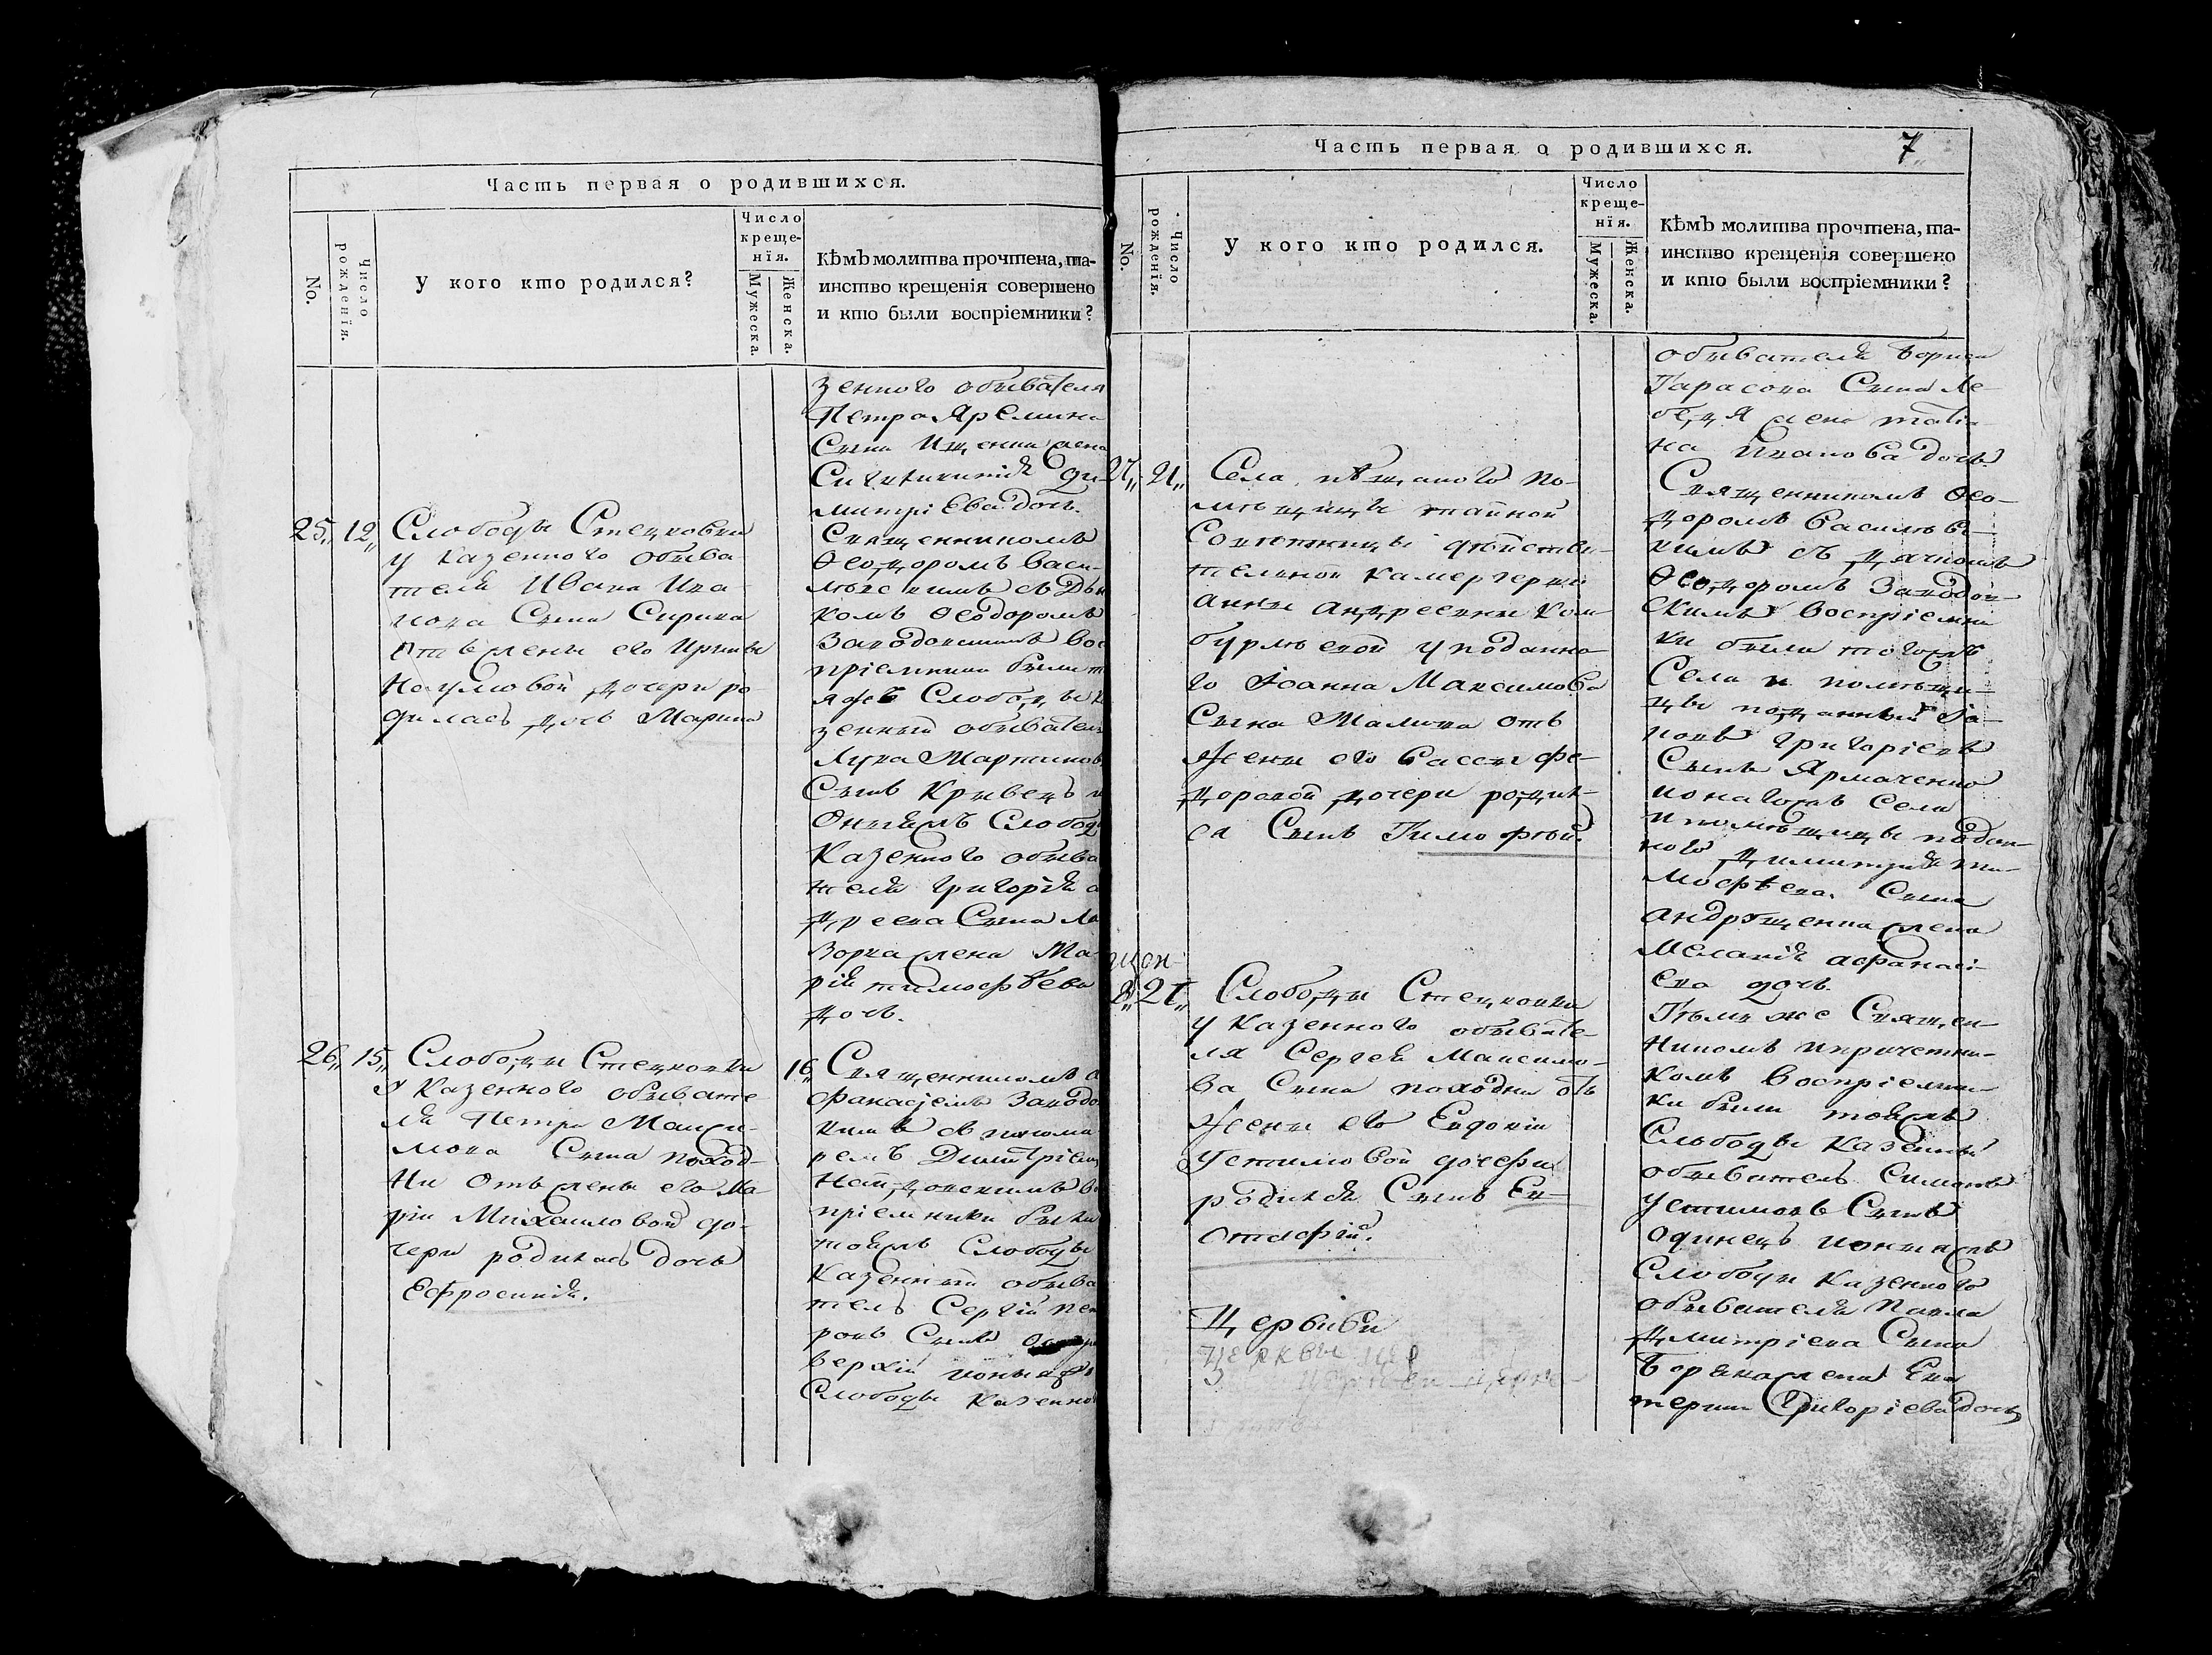 Часть первая о родившихся.
No.
Число рожденїя.
У кого кто родился?
Число креще-нїя.
Мужеска.
Женска.
Кѣмъ молитва прочтена, та-
инство крещенїя совершено
и кто были воспрїемники?
зенного обывателя
Петра Яремина
Сына Ищенка жена
дми-
митріева дочь.
25„ 12„
Слободы Стецковки
у казенного обыва
теля Ивана Ива
нова Сына Сирика
отъ жены его Ирины
Наумовой дочери ро
дилась дочь Марина
Священникомъ
Ѳеодоромъ Васи-
комъ Ѳеодоромъ
пріемники были т
яжъ Слободы к
зенный обыватель
Лука Мартиновъ
Сынъ Кривецъ и
Оныяжъ Слобод
Казенного обыва
теля Григорія а
дреева Сына Ла
зорка жена Ма
рія тимофѣева
дочь.
26„ 15„
Слободы Стецковки
у Казенного обывате
ля Петра Макси-
мова Сына поход-
ни отъ жены его Ма-
ріи Михаиловой до-
чери родилась дочь
Ефросинія.
16„
Священникомъ а
фанасіемъ Заводо
кимъ съ понома
ремъ Димитріем
пріемники были
тояжъ Слободы
Казенный обыва
тель Сергій пет
ровъ Сынъ
Слободы Казенно
Часть первая о родившихся.
7
No.
Число рожденїя.
У кого кто родился.
Число креще-нїя.
Мужеска.
Женска.
Кѣмъ молитва прочтена, та-
инство крещенїя совершено
и кто были воспрїемники?
обывателя Бориса
Тарасова Сына Ле-
бедя жена татія-
на Иванова дочь.
27„ 21„
Села пѣщаного по-
мѣщицы тайной
Совѣтницы дѣйстви-
тельной камергерши
анны андреевны Ком-
бурлѣевой у поданна-
го Іоанна Максимова
Сына Малика отъ
жены его Вассы фе-
доровой дочери родил-
ся Сынъ Тимофѣй.
Священникомъ Ѳео-
доромъ Василѣв-
кимъ съ дячкомъ
Ѳеодоромъ Заводов-
скимъ воспріемни
ки были тогожъ
Села и помѣщи-
цы подданный Га-
понъ Григоріевъ
Сынъ Ярмаченко
и помѣщицы подан-
ного Димитрія ти-
мофѣева Сына
андрющенка жена
Меланія афанасі-
ева дочь.
8„ 27„
Слободы Стецковки
у Казенного обывате-
ля Сергея Максимо-
ва Сына походни отъ
жены его Евдокіи
устимовой дочери
родился Сынъ Ев-
стафій.
Тѣмъ же Священ-
никомъ и причетни-
комъ воспріемни-
ки были тояжъ
Слободы Казенный
обыватель Симонъ
устимовъ Сынъ
одинецъ и оныяжъ
Слободы Казенного
обывателя Павла
дмитріева Сына
жена Ека
терина Григоріева дочь
церкви